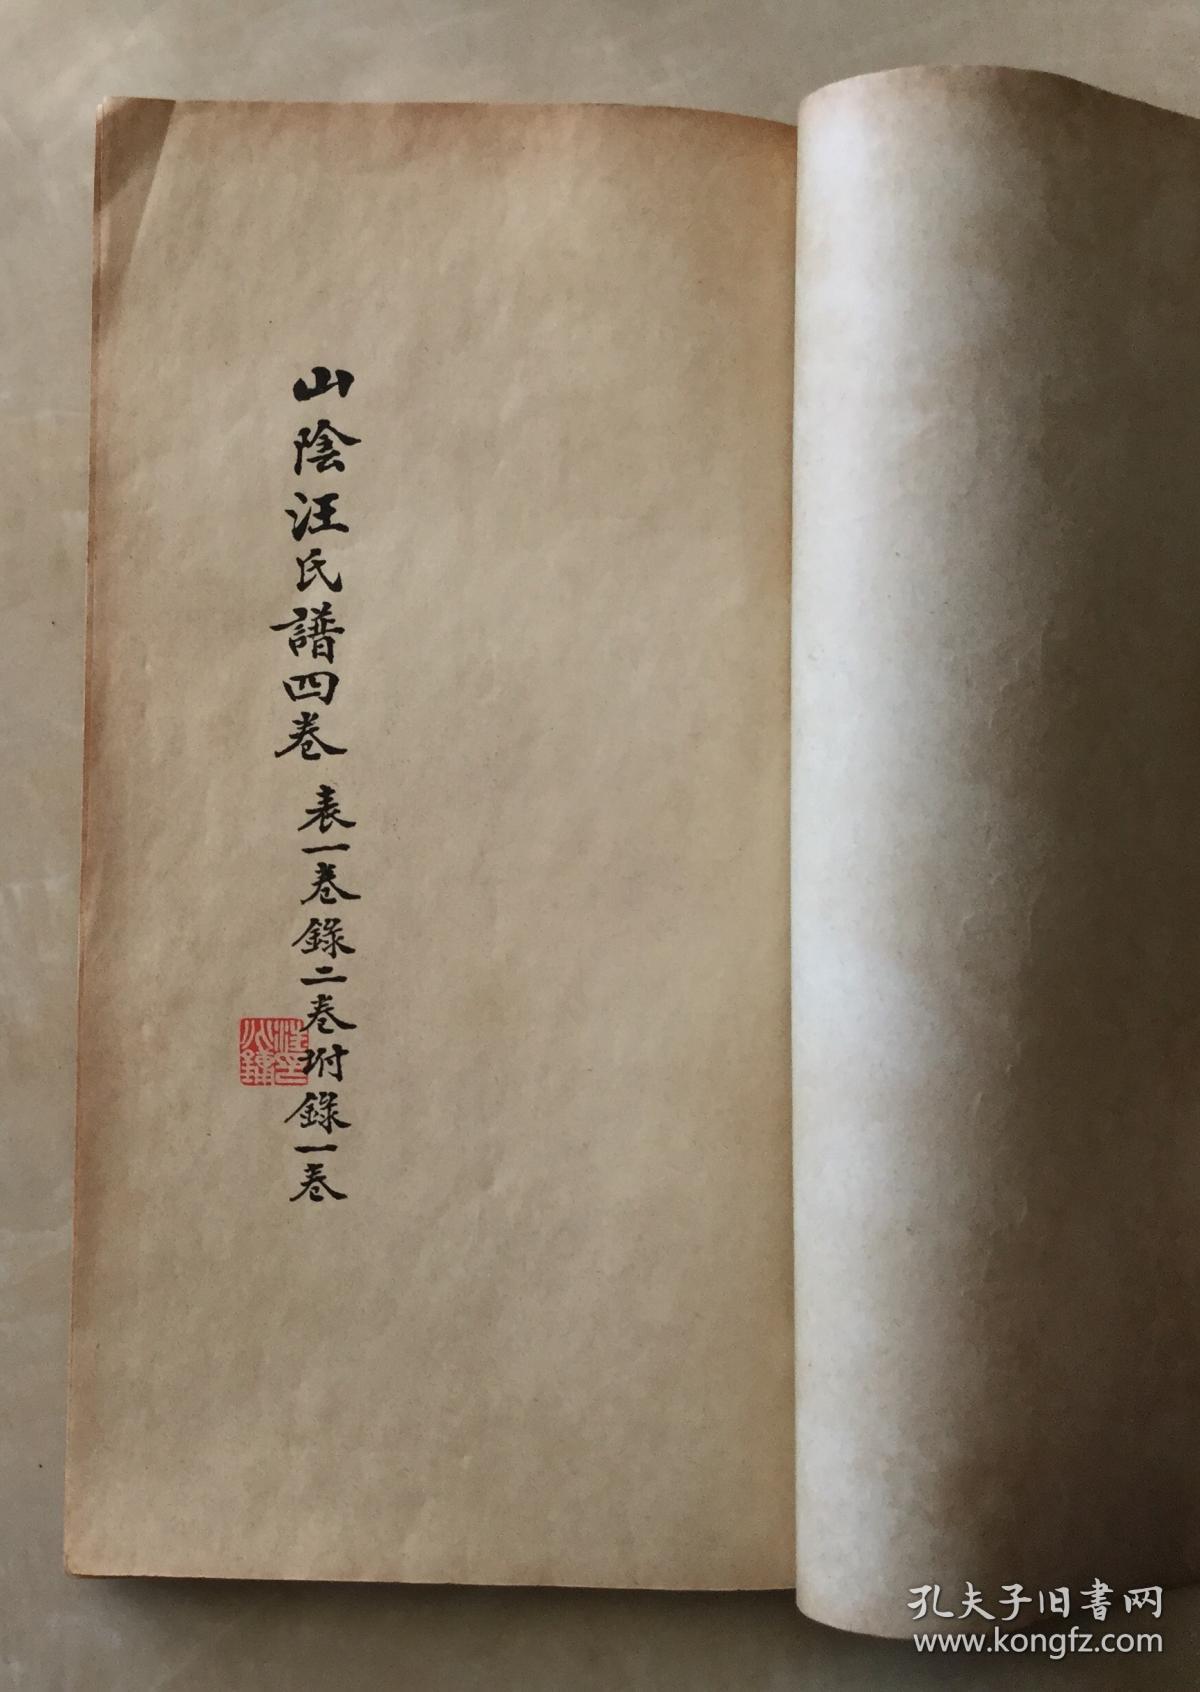 山陰汪氏譜四卷 表一卷錄二卷坿錄一卷
孔夫子旧書网
www.kongfz.com